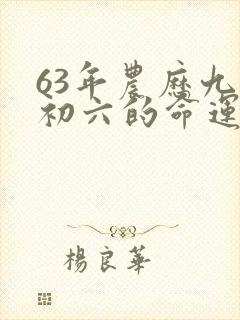 63年農歷九
初六的命運
楊良華